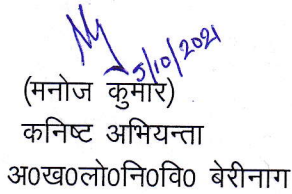 5/10/2021
(मनोज कुमार)
कनिष्ट अभियन्ता
अ0ख0लो0नि0वि0 बेरीनाग